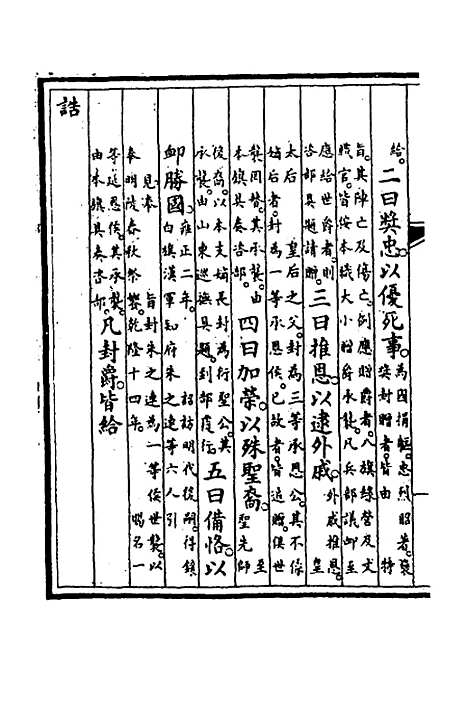 給。二曰奬忠。以優死事。為國捐軀。忠烈昭著。襃
奬封贈者。皆由 特
旨。其陣亡及傷亡。例應贈爵者。八旗綠營及文
職官。皆按本職大小贈爵承襲。凡兵部議卹至
應給世爵者。則
咨部具題請贈。三曰推恩。以逮外戚。外戚推恩。
皇
太后 皇后之父。封為三等承恩公。其不係
始后者。封為一等承恩侯。已故者。皆追贈。俱世
襲罔替。其承襲。由
本旗具奏咨部。四曰加榮。以殊聖裔。至
聖先師
後裔。以本支嫡長封為衍聖公。其
承襲。由山東巡撫具題。到部覆行。五曰備恪。以
卹勝國。雍正二年。 詔訪明代後嗣。得鎮
白旗漢軍知府朱之璉等六人引
見。奉 旨封朱之璉為一等侯世襲。以
奉明陵春秋祭祀。乾隆十四年。 賜名一
等延恩侯。其承襲。
由本旗具奏咨部。凡封爵。皆給
誥